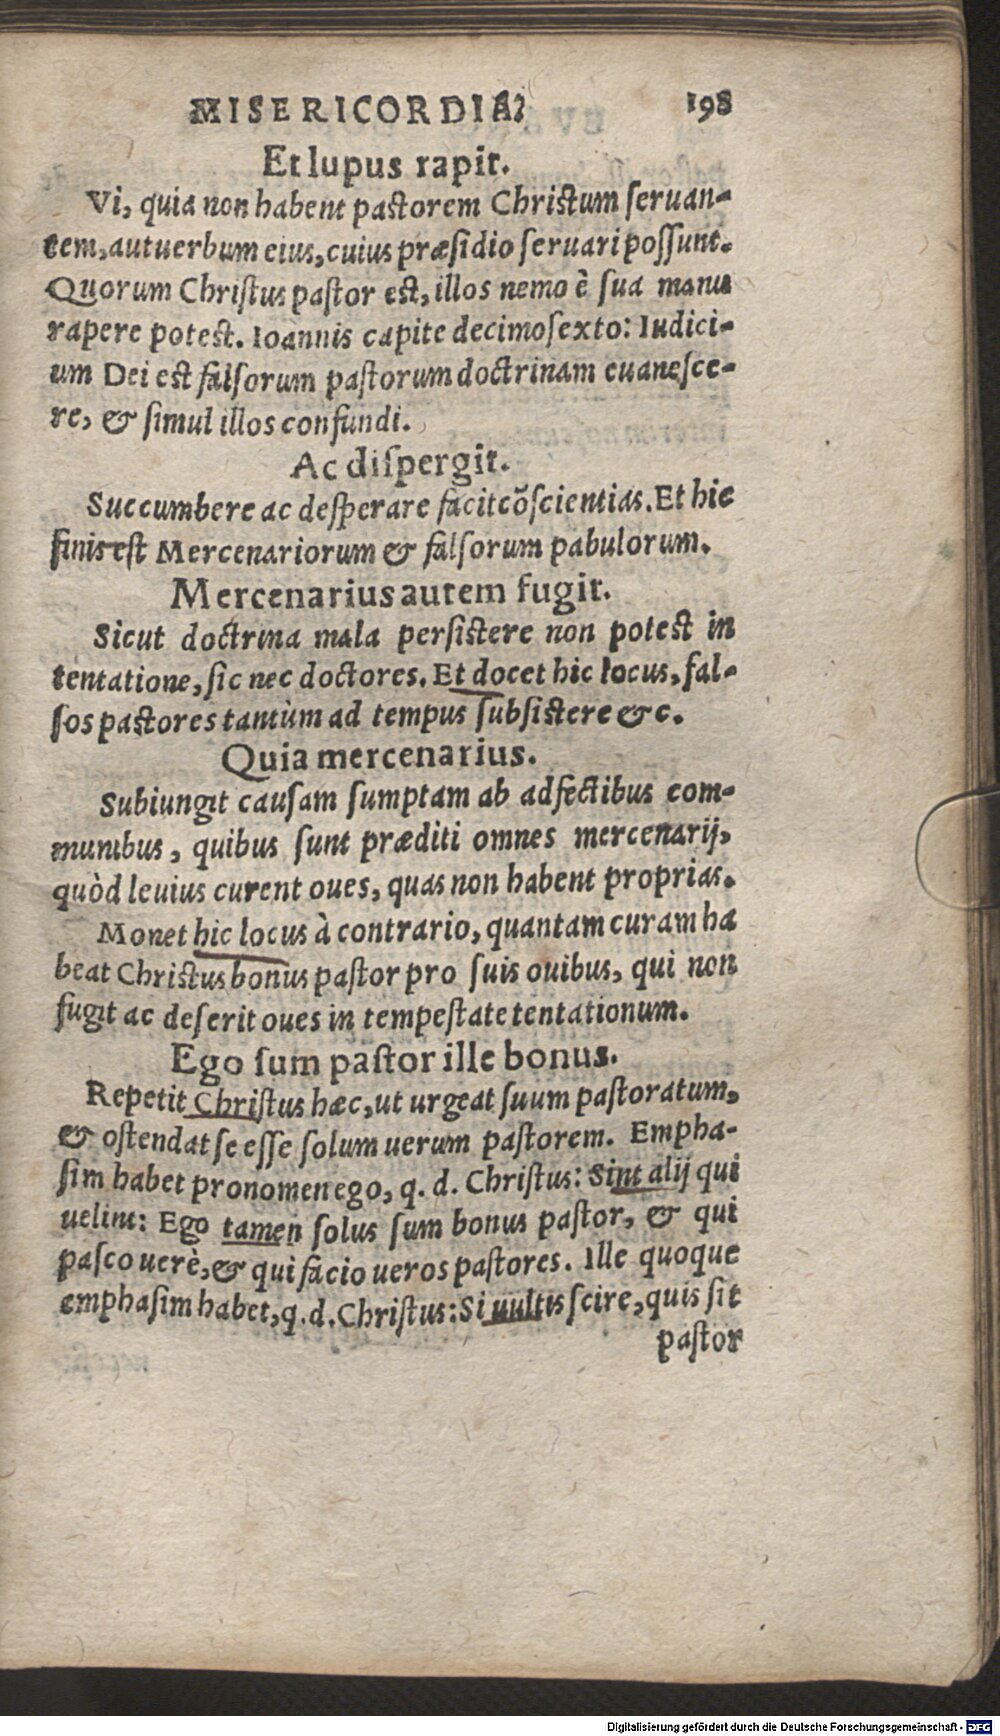 MISERICORDIÆ 198
Et lupus rapit.
Vi, quia non habent pastorem Christum seruan-
tem, aut uerbum eius, cuius præsidio seruari possunt.
Quorum Christus pastor est, illos nemo è sua manu
rapere potest. Ioannis capite decimosexto: Iudici-
um Dei est falsorum pastorum doctrinam euanesce-
re, & simul illos confundi.
Ac dispergit.
Succumbere ac desperare facit cõscientias. Et hic
finis est Mercenariorum & falsorum pabulorum.
Mercenarius autem fugit.
Sicut doctrina mala persistere non potest in
tentatione, sic nec doctores. Et docet hic locus, fal-
sos pastores tantùm ad tempus subsistere &c.
Quia mercenarius.
Subiungit causam sumptam ab adfectibus com-
munibus, quibus sunt præditi omnes mercenarij,
quòd leuius curent oues, quas non habent proprias.
Monet hic locus à contrario, quantam curam ha
beat Christus bonus pastor pro suis ouibus, qui non
fugit ac deserit oues in tempestate tentationum.
Ego sum pastor ille bonus.
Repetit Christus hæc, ut urgeat suum pastoratum,
& ostendat se esse solum uerum pastorem. Empha-
sim habet pronomen ego, q. d. Christus: Sint alij qui
uelint: Ego tamen solus sum bonus pastor, & qui
pasco uerè, & qui facio ueros pastores. Ille quoque
emphasim habet, q. d. Christus: Si uultis scire, quis sit
pastor
Digitalisierung gefördert durch die Deutsche Forschungsgemeinschaft - DFG